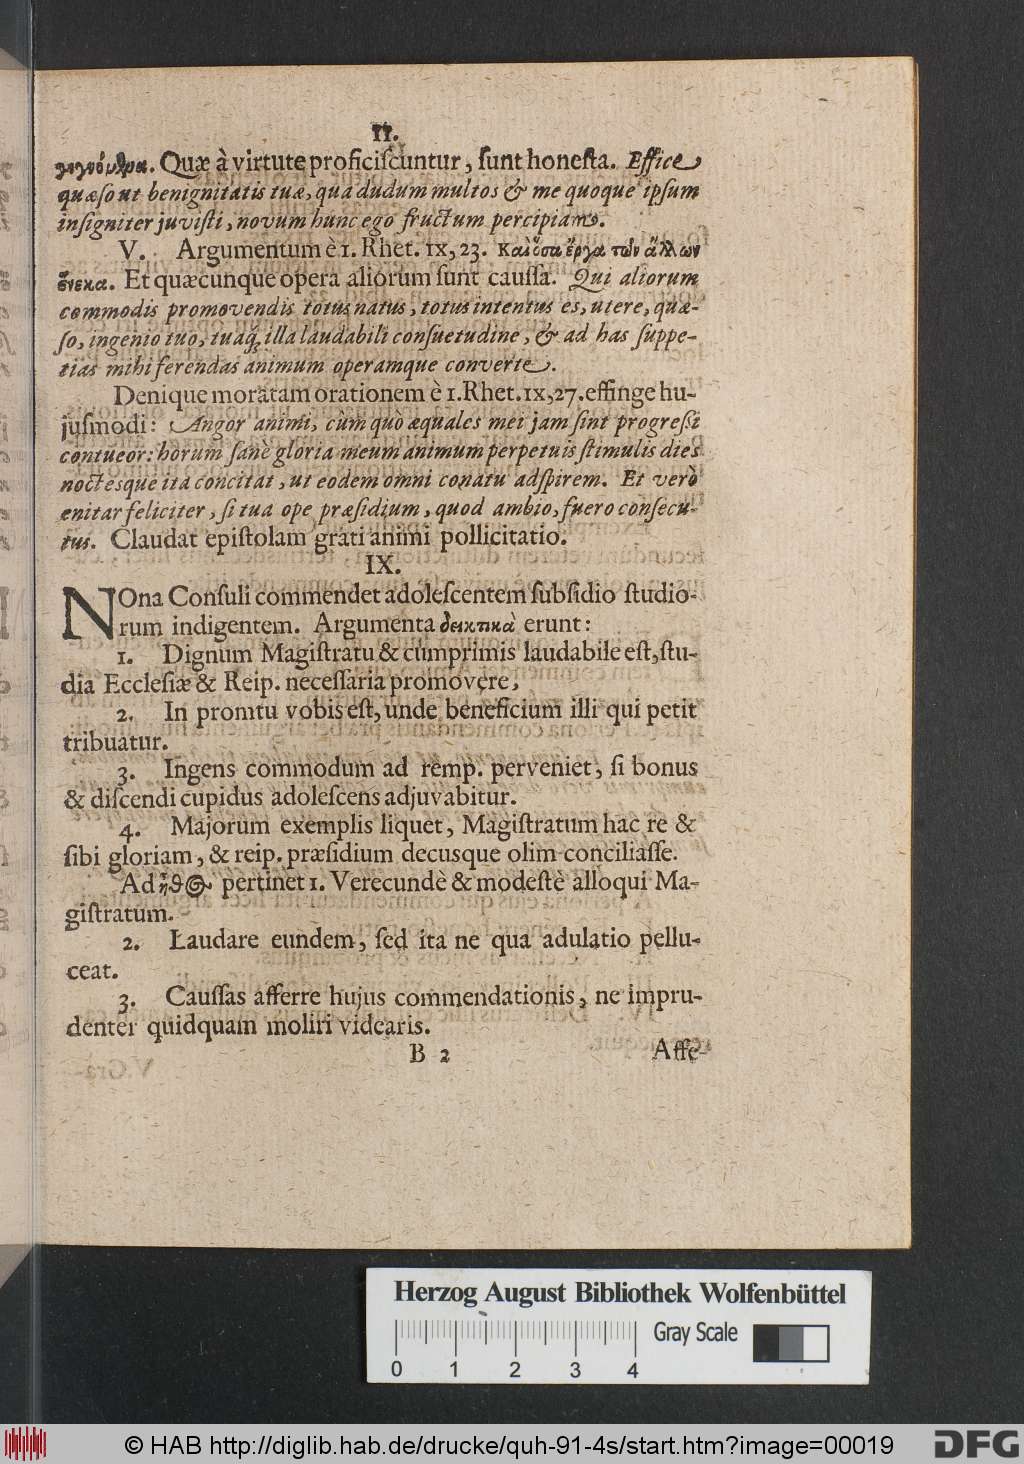 11.
γιγνόμθμα. Quæ à virtute proficiſcuntur, ſunt honeſta. Effice
quæſo ut benignitatis tuæ, qua dudum multos & me quoque ipſum
inſigniter juviſti, novum hunc ego fructum percipiam.
V. Argumentum è 1. Rhet. IX, 23. Καὶ ὅσα ἔργα τῶν ἄλλων
ἕνεκα. Et quæcunque opera aliorum ſunt cauſſa. Qui aliorum
commodis promovendis totus natus, totus intentus es, utere, quæ-
ſo, ingenio tuo, tuaq; illa laudabili conſuetudine, & ad has ſuppe-
tias mihi ferendas animum operamque converte.
Denique moratam orationem è 1. Rhet. IX, 27. effinge hu-
juſmodi: Angor animi, cùm quò æquales mei jam ſint progreſſi
contueor: horum ſanè gloria meum animum perpetuis ſtimulis dies
noctesque ita concitat, ut eodem omni conatu adſpirem. Et verò
enitar feliciter, ſi tua ope præſidium, quod ambio, fuero conſecu-
tus. Claudat epiſtolam grati animi pollicitatio.
IX.
NOna Conſuli commendet adoleſcentem ſubſidio ſtudio-
rum indigentem. Argumenta δεικτικὰ erunt:
1. Dignum Magiſtratu & cùmprimis laudabile eſt, ſtu-
dia Eccleſiæ & Reip. neceſſaria promovere,
2. In promtu vobis eſt, unde beneficium illi qui petit
tribuatur.
3. Ingens commodum ad remp. perveniet, ſi bonus
& diſcendi cupidus adoleſcens adjuvabitur.
4. Majorum exemplis liquet, Magiſtratum hac re &
ſibi gloriam, & reip. præſidium decusque olim conciliaſſe.
Ad ἦθος pertinet 1. Verecundè & modeſtè alloqui Ma-
giſtratum.
2. Laudare eundem, ſed ita ne qua adulatio pellu-
ceat.
3. Cauſſas afferre hujus commendationis, ne impru-
denter quidquam moliri videaris.
B 2 Affe-
Herzog August Bibliothek Wolfenbüttel
Gray Scale
0 1 2 3 4
© HAB http://diglib.hab.de/drucke/quh-91-4s/start.htm?image=00019
DFG